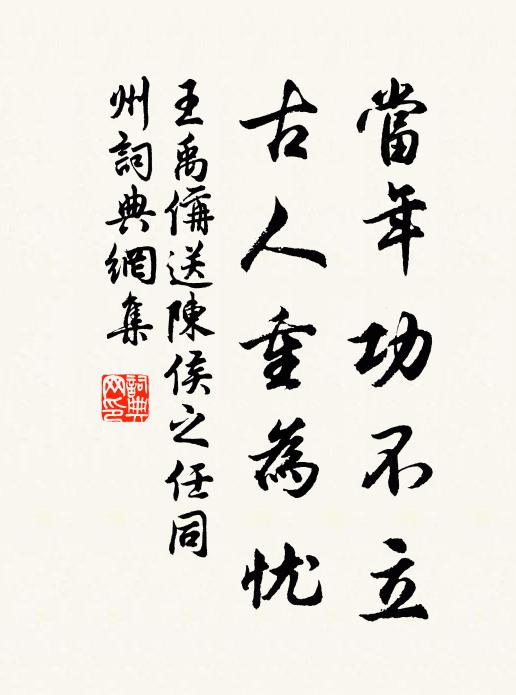 當年功不立
古人重為忧
王禹偁送陳侯之任同
州詞典網集
詞典
网印